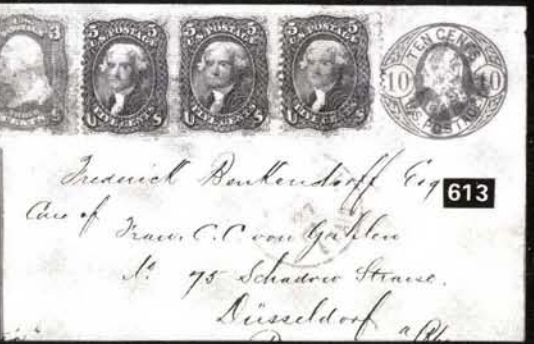 3 CENTS
5 U.S. POSTAGE 5
U FIVE CENTS S
5 U.S. POSTAGE 5
U FIVE CENTS S
5 U.S. POSTAGE 5
U FIVE CENTS S
TEN CENTS
10 10
U.S. POSTAGE
Frederick Benkendorff Esq
613
Care of
Frau. C.C. von
No 75 Schadow Strasse.
Düsseldorf